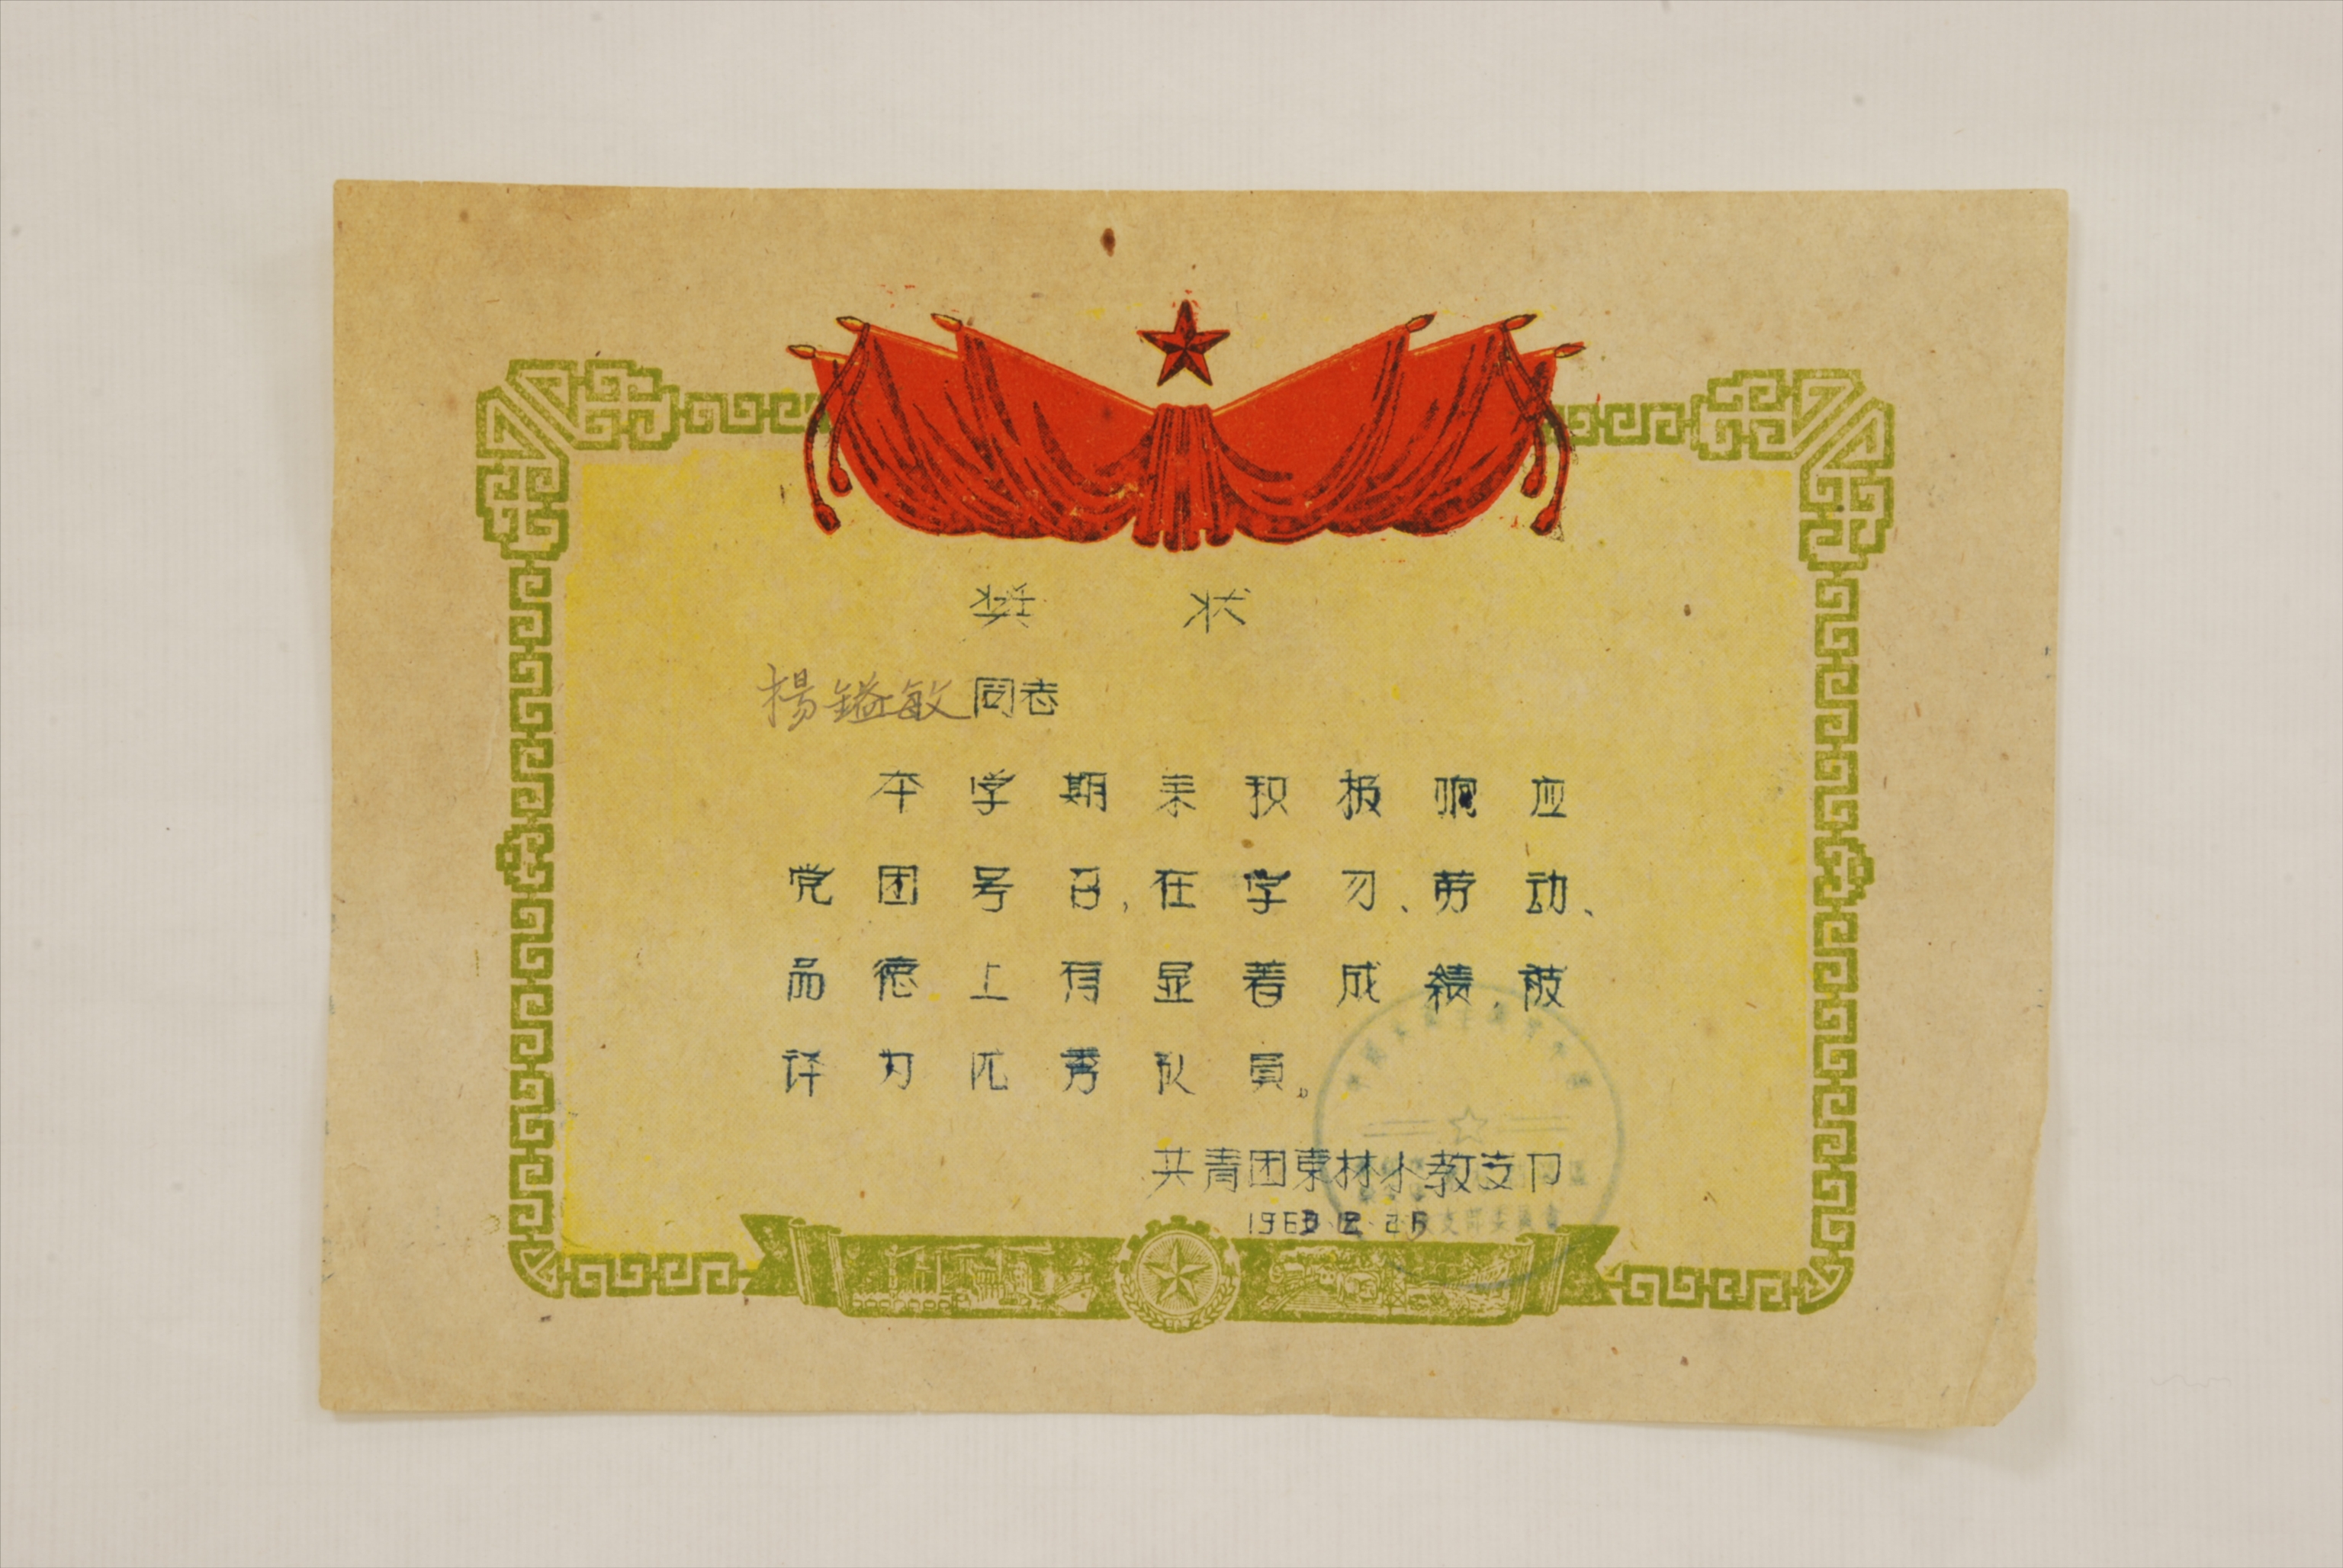 奖 状
楊鎰敏同志
本学期来积极响应
党团号召,在学习、劳动、
品德上有显着成績,被
评为优秀队員。
共青团東林小教支卩
支部委員會